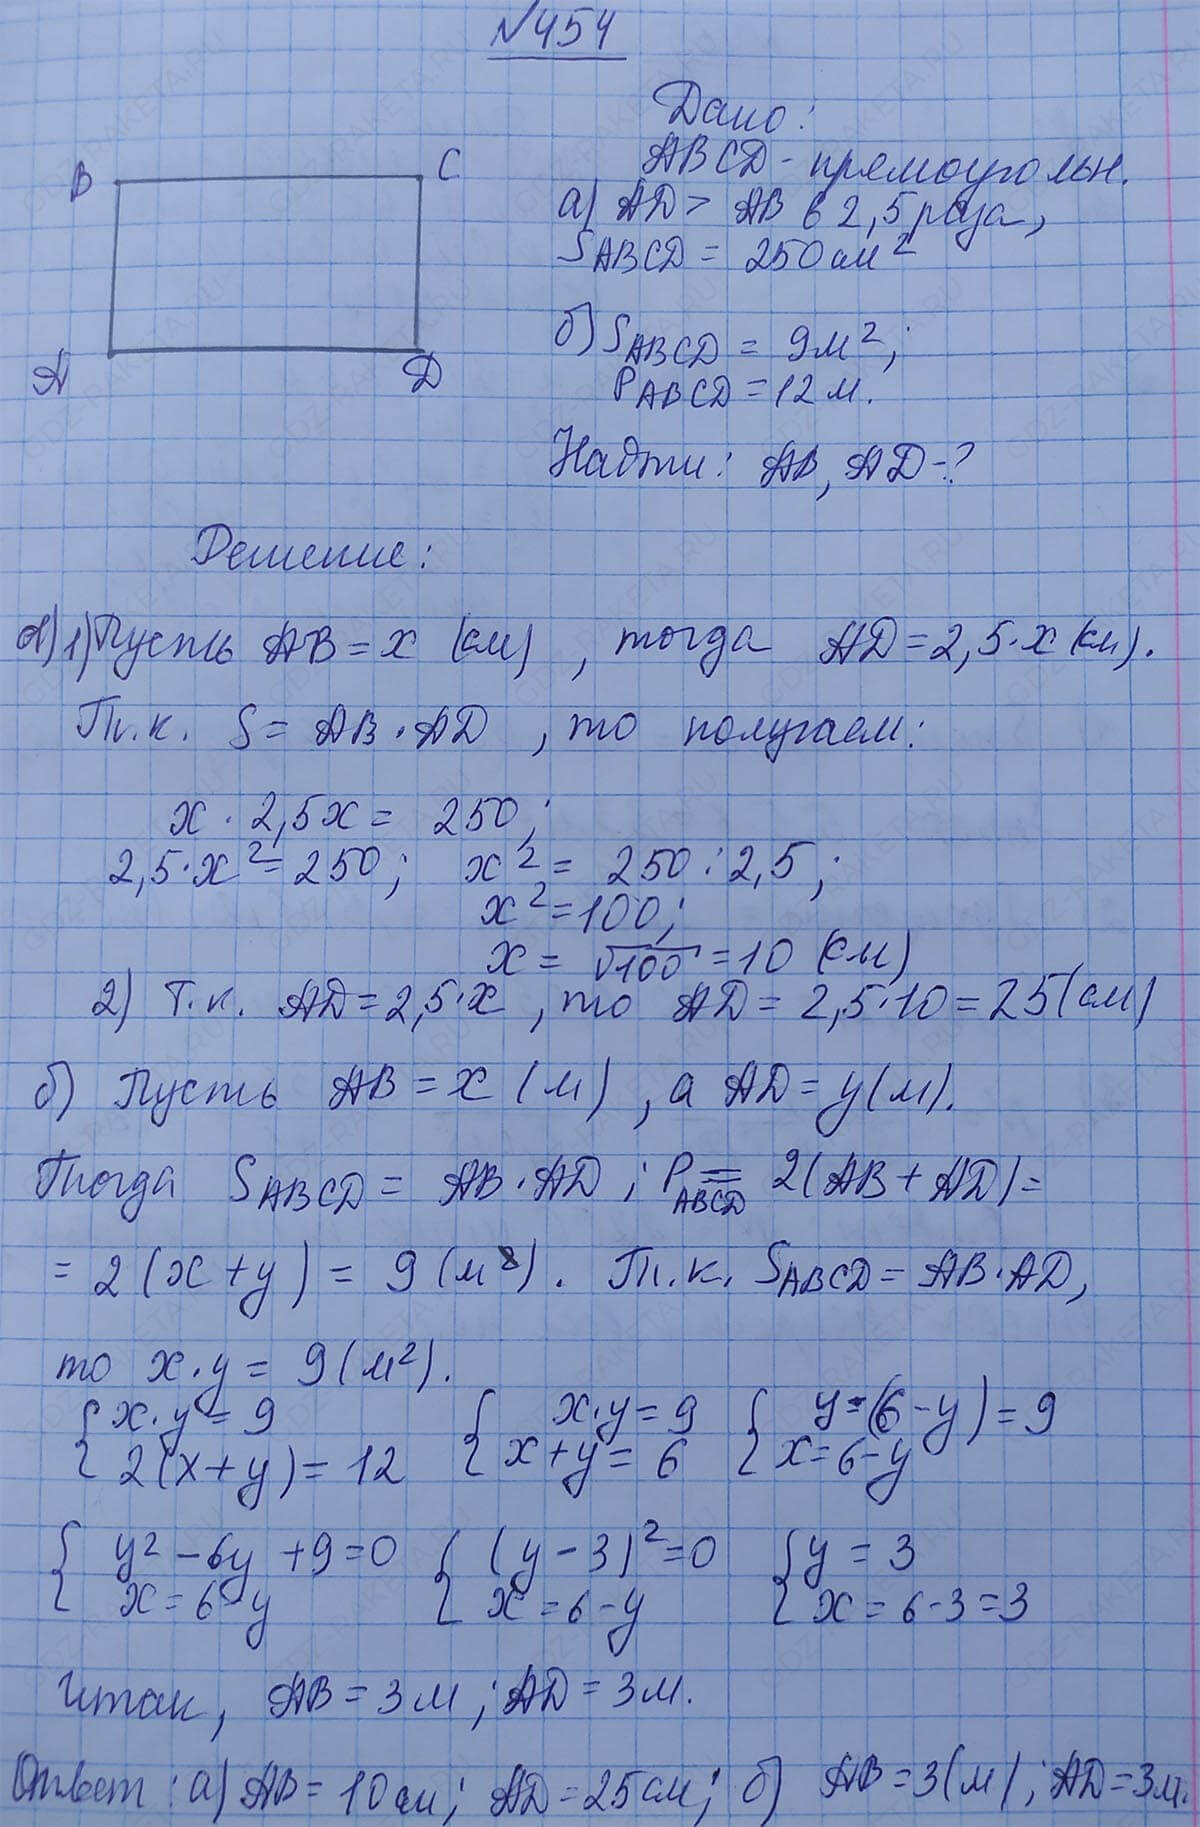 №454
Дано:
B
C
ABCD - прямоугольн.
а) AD > AB в 2,5 раза,
SABCD = 250 см²
б) SABCD = 9 м²;
A
D
PABCD = 12 м.
Найти: AB, AD - ?
Решение:
а) 1) Пусть AB = x (см), тогда AD = 2,5·x (см).
Т.к. S = AB·AD, то получаем:
x · 2,5x = 250;
2,5·x² = 250; x² = 250 : 2,5;
x² = 100;
x = √100 = 10 (см)
2) Т.к. AD = 2,5·x, то AD = 2,5·10 = 25 (см)
б) Пусть AB = x (м), а AD = y (м).
Тогда SABCD = AB·AD; PABCD = 2(AB + AD) =
= 2(x + y) = 9 (м²). Т.к. SABCD = AB·AD,
то x·y = 9 (м²).
{ x·y = 9 { x·y = 9 { y=(6-y) = 9
2(x+y) = 12 x+y = 6 x = 6-y
{ y² - 6y + 9 = 0 { (y - 3)² = 0 { y = 3
x = 6-y x = 6-y x = 6-3 = 3
Итак, AB = 3 м; AD = 3 м.
Ответ: а) AB = 10 см; AD = 25 см; б) AB = 3 (м); AD = 3 м.